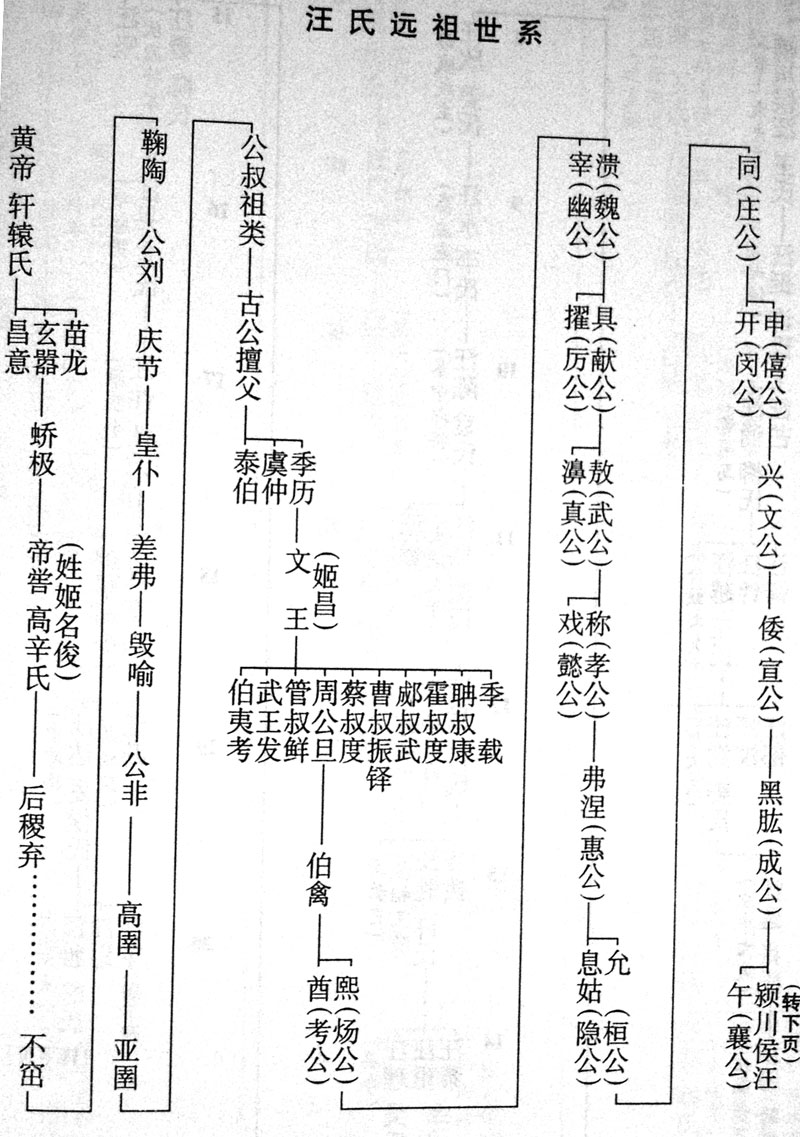 汪氏远祖世系
黄帝 轩辕氏
昌意
玄嚣
苗龙
蛴极
帝喾 高辛氏
(姓姬名俊)
后稷弃
不窋
鞠陶
公刘
庆节
皇仆
差弗
毁喻
公非
高圉
亚圉
公叔祖类
古公擅父
泰伯
虞仲
季历
文王
(姬昌)
伯夷考
武王发
管叔鲜
周公旦
蔡叔度
曹叔振铎
郕叔武
霍叔度
聃叔康
季载
伯禽
酋(考公)
熙(炀公)
宰(幽公)
溃(魏公)
擢(厉公)
具(献公)
濞(真公)
敖(武公)
戏(懿公)
称(孝公)
弗涅(惠公)
息姑(隐公)
允 桓公)
同(庄公)
开(闵公)
申(僖公)
兴(文公)
倭(宣公)
黑肱(成公)
午(襄公)
颍川侯汪
(转下页)